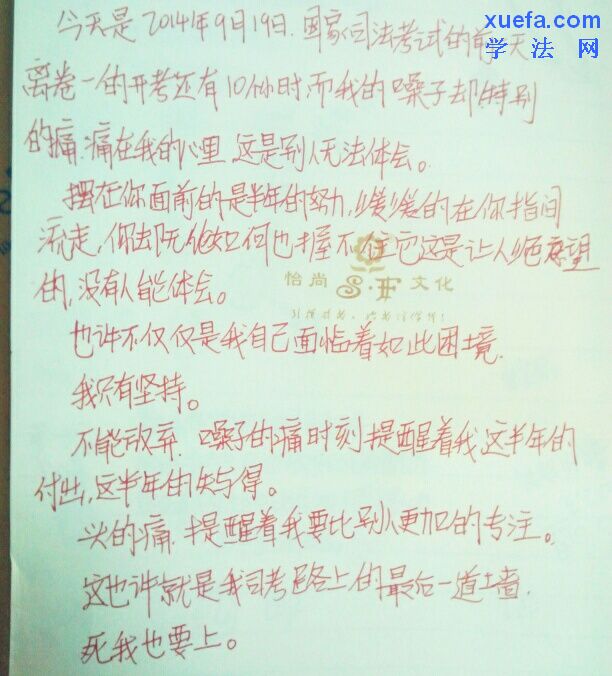 xuefa.com
学法网
今天是2014年9月19日.国家司法考试的前一天
离卷一的开考还有10小时而我的嗓子却特别
的痛.痛在我的心里 这是别人无法体会。
摆在你面前的是半年的努力,缓缓的在你指间
流走,你却无论如何也握不住它这是让人绝望
的,没有人能体会。
怡尚 S.F 文化
也许不仅仅是我自己面临着如此困境.
我只有坚持。
不能放弃.嗓子的痛时刻提醒着我这半年的
付出,这半年的失与得。
头的痛.提醒着我要比别人更加的专注。
这也许就是我司考路上的最后一道墙.
死我也要上。